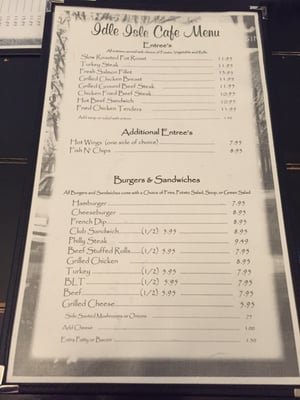 Idle Isle Cafe Menu
Entree's
All entrees served with choice of Potato, Vegetable and Rolls
Slow Roasted Pot Roast 11.95
Turkey Steak 11.95
Fresh Salmon Fillet 13.95
Grilled Chicken Breast 11.95
Grilled Ground Beef Steak 11.95
Chicken Fried Beef Steak 10.95
Hot Beef Sandwich 10.95
Fried Chicken Tenders 11.95
Add soup or salad with entree
Additional Entree's
Hot Wings (one side of choice) 7.95
Fish N' Chips 8.95
Burgers & Sandwiches
All Burgers and Sandwiches come with a Choice of Fries, Potato Salad, Soup, or Green Salad
Hamburger 7.95
Cheeseburger 8.95
French Dip 8.95
Club Sandwich (1/2) 5.95 8.95
Philly Steak 9.49
Beef Stuffed Rolls (1/2) 5.95 7.95
Grilled Chicken 8.95
Turkey (1/2) 5.95 7.95
BLT (1/2) 5.95 7.95
Beef (1/2) 5.95 7.95
Grilled Cheese 5.95
Side Sauted Mushrooms or Onions .75
Add Cheese 1.00
Extra Patty or Bacon 1.50